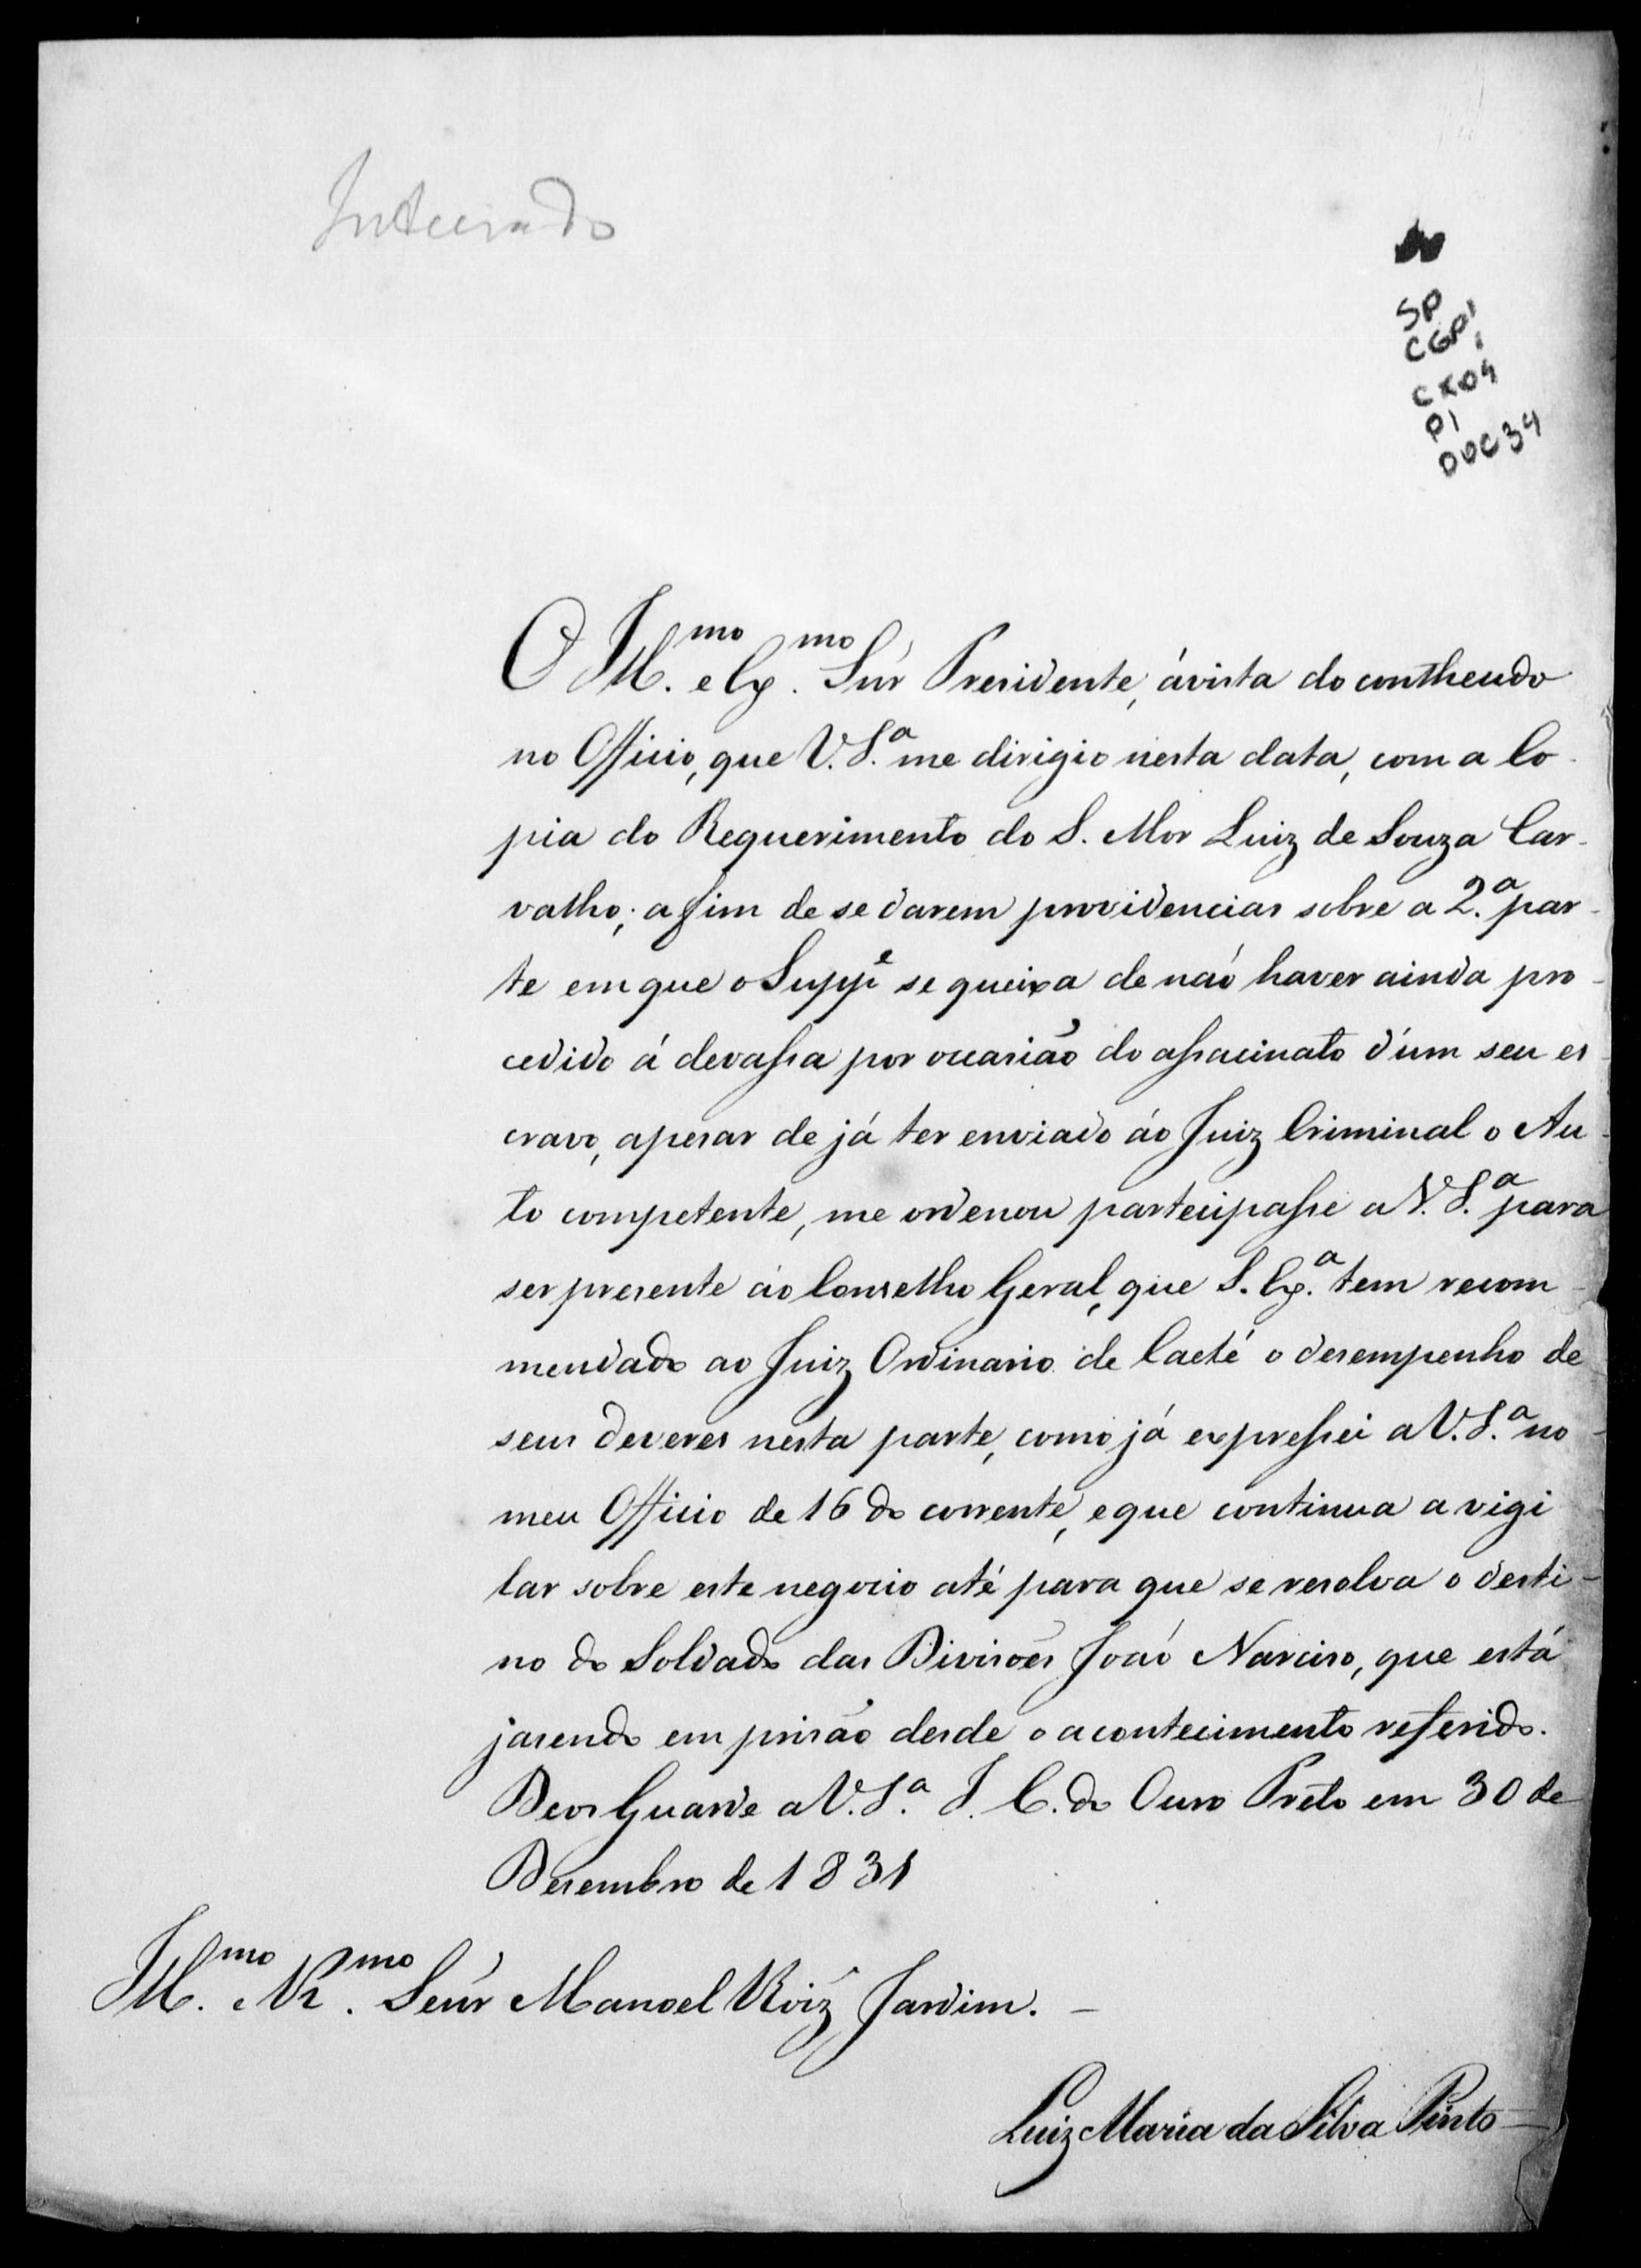 Inteirado
SP
CGP1
CX04
P1
DOC 34
O Ill.mo e Ex.mo Snr Presidente, ávista do contheudo
no Officio, que V. S.a me dirigio nesta data, com a Co-
pia do Requerimento do S. Mor Luiz de Souza Car-
valho; a fim de se darem providencias sobre a 2.a par-
te em que o Supp.e se queixa de naó haver ainda pro-
cedido á devassa por occasiaõ do assacinato d'um seu es-
cravo, apesar de já ter enviado áo Juiz Criminal o Au-
to competente, me ordenou partecipasse a V. S.a para
ser presente áo Conselho Geral, que S. Ex.a tem recom-
mendado ao Juiz Ordinario de Caeté o desempenho de
seus deveres nesta parte, como já expressei a V. S.a no
meu Officio de 16 do corrente, e que continua a vigi
lar sobre este negocio até para que se resolva o desti-
no do Soldado das Divisoẽs Joaó Narciso, que está
jasendo em prisaõ desde o acontecimento referido.
Deos Guarde a V. S.a I. C. do Ouro Preto em 30 de
Desembro de 1831
Ill.mo e R.mo Senr Manoel Roiz Jardim. –
Luiz Maria da Silva Pinto